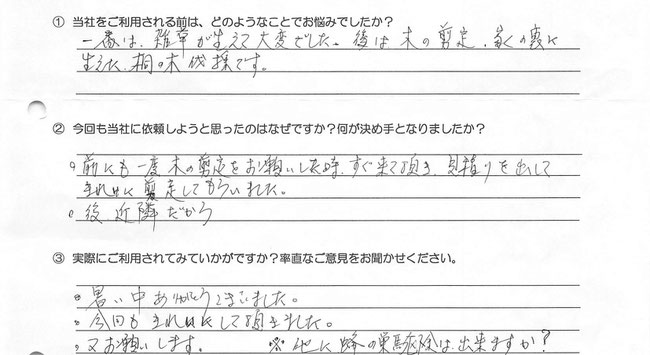 ① 当社をご利用される前は、どのようなことでお悩みでしたか？
一番は、雑草が生えて大変でした。後は木の剪定、家の裏に
生えた桐の木伐採です。
② 今回も当社に依頼しようと思ったのはなぜですか？何が決め手となりましたか？
。前にも一度木の剪定をお願いした時、すぐ来て頂き、見積りを出して
きれいに剪定してもらいました。
。後、近隣だから
③ 実際にご利用されてみていかがですか？率直なご意見をお聞かせください。
。暑い中ありがとうございました。
。今回もきれいにして頂きました。
。又お願いします。 ※他に蜂の巣駆除は出来ますか？